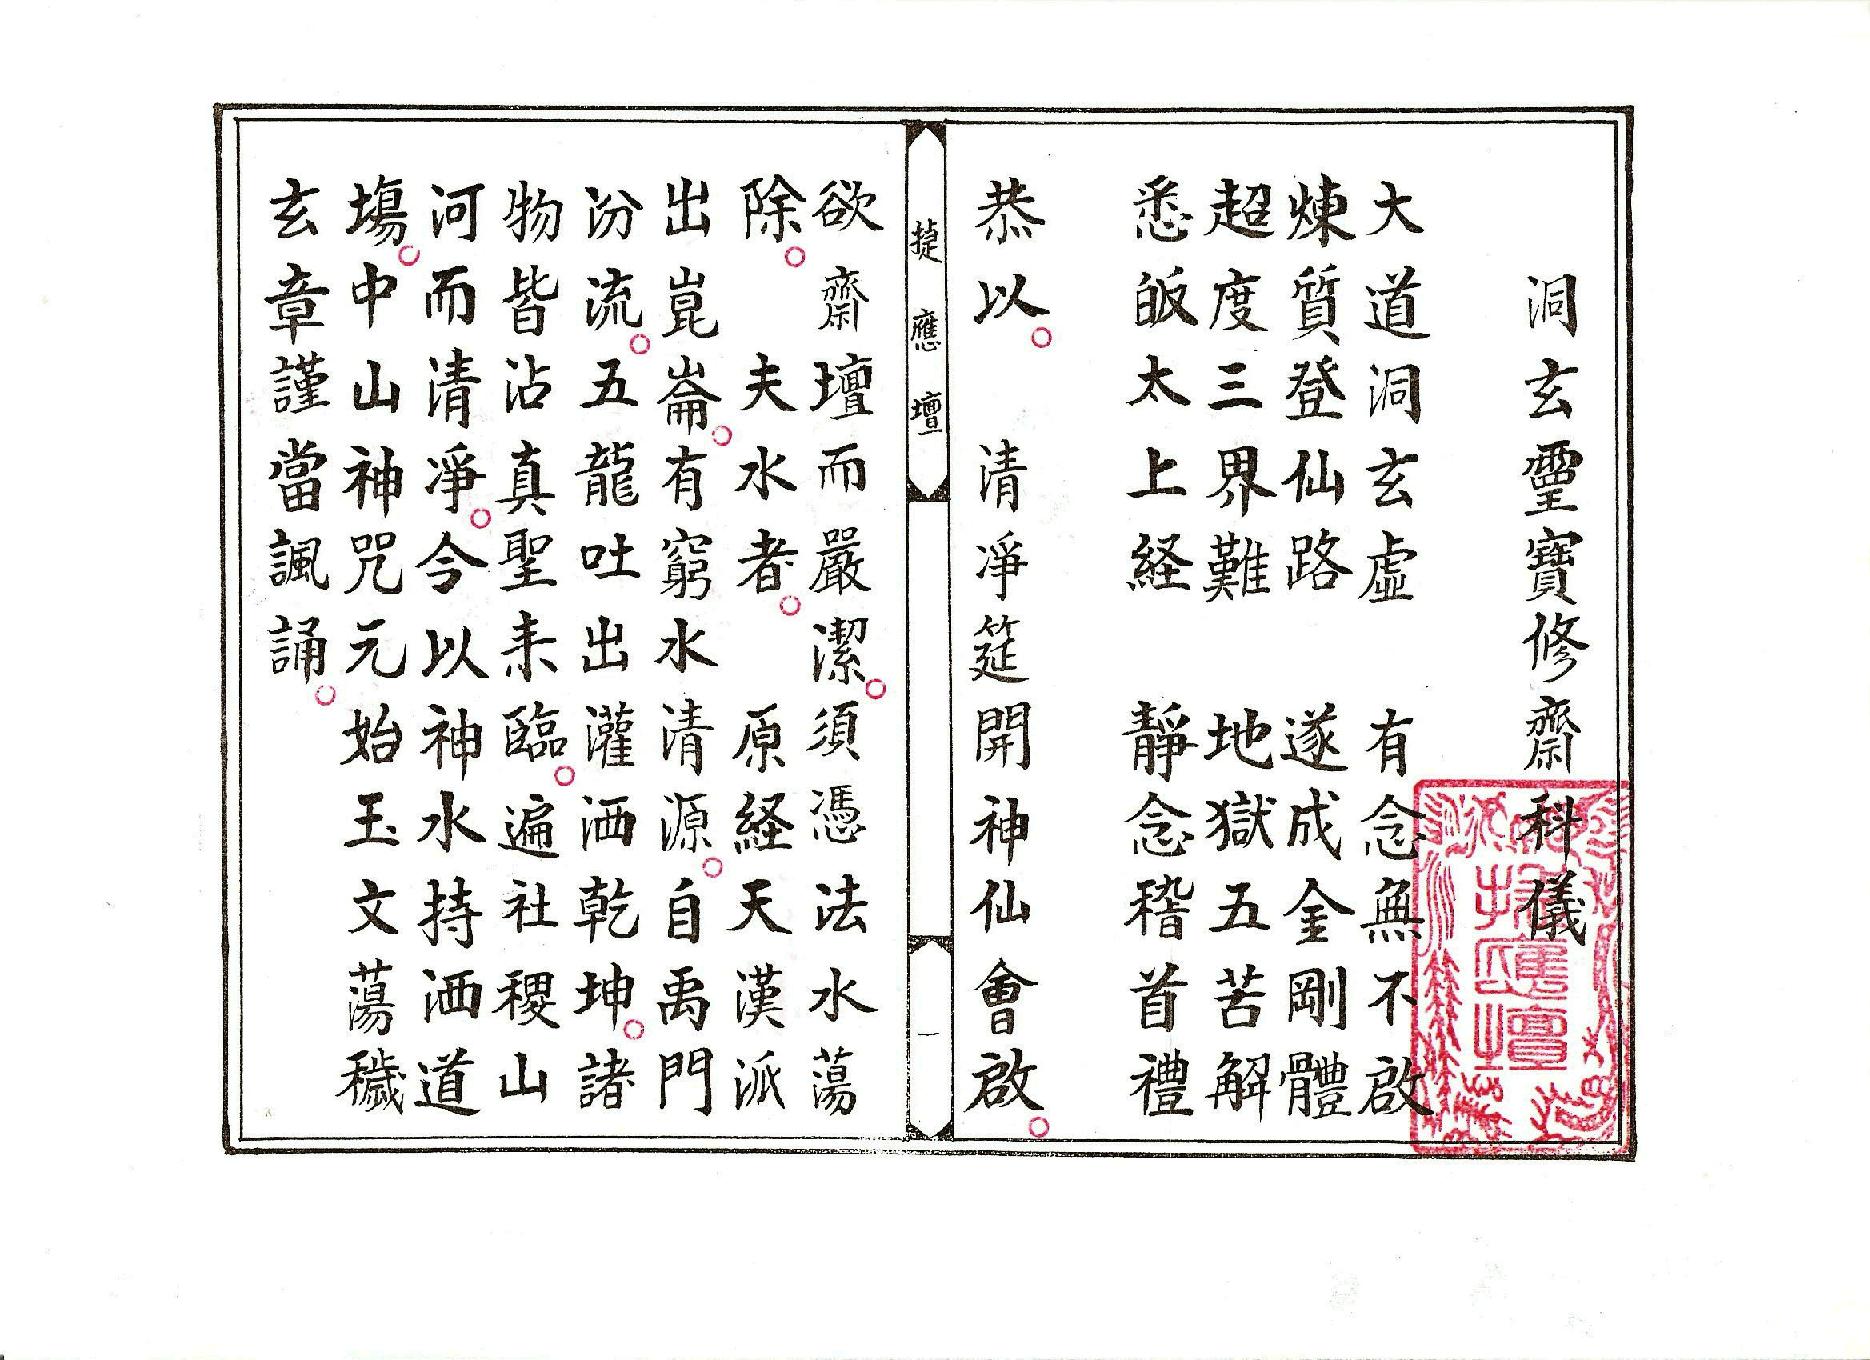 洞玄靈寶修齋科儀
大道洞玄虛　有念無不啟
煉質登仙路　遂成金剛體
超度三界難　地獄五苦解
悉皈太上経　靜念稽首禮
恭以○　清凈筵開神仙會啟○
捷應壇
一
欲齋壇而嚴潔○須憑法水蕩
除○　夫水者○　原経天漢派
出崑崙○有窮水清源○自禹門
汾流○五龍吐出灌洒乾坤○諸
物皆沾真聖来臨○遍社稷山
河而清凈○今以神水持洒道
塲○中山神咒元始玉文蕩穢
玄章謹當諷誦○